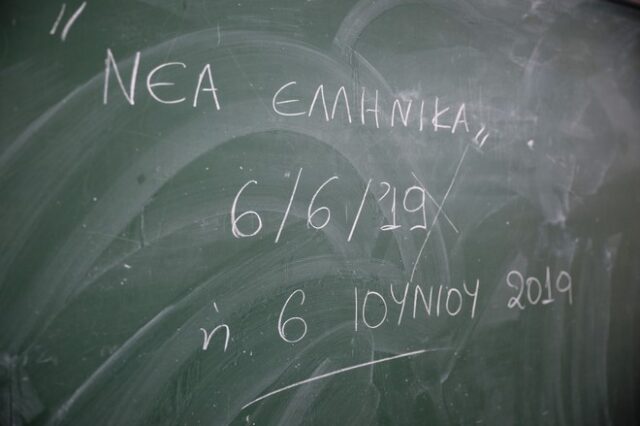 " ΝΕΑ ΕΛΛΗΝΙΚΑ„
6/6/'19
ή 6 ΙΟΥΝΙΟΥ 2019